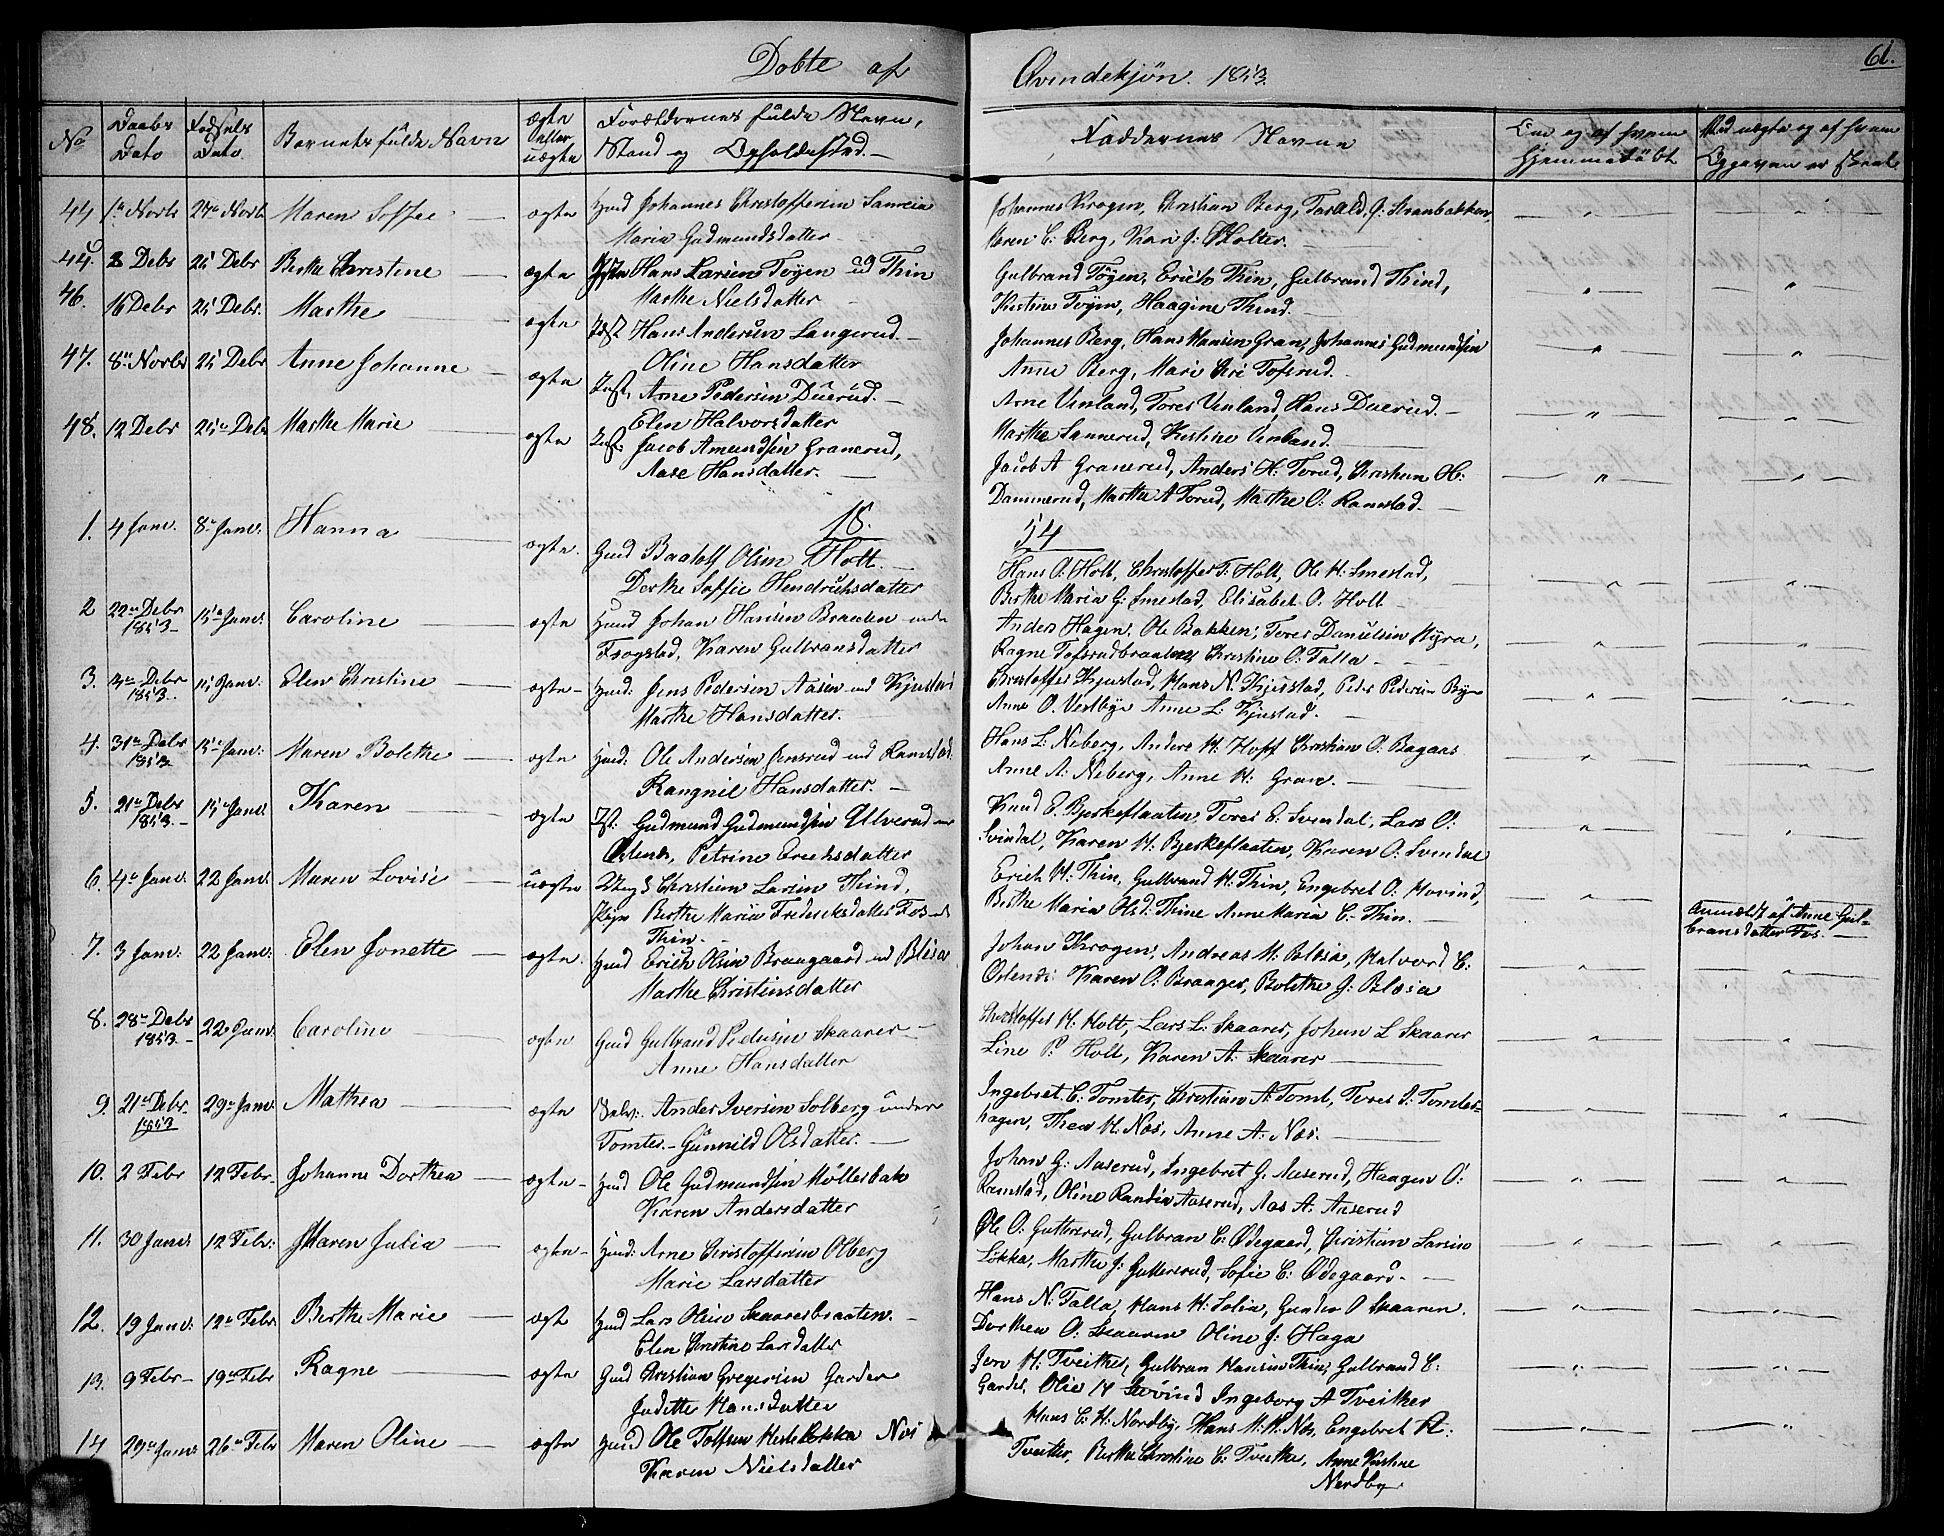 Døbte af
Qvindekjøn. 1853.
61.
No
Daabs Dato
Fødsels Dato.
Barnets fulde Navn
ægte eller uægte
Forældrenes fulde Navn, Stand og Opholdssted.
Faddernes Navne
Om og af hvem Hjemmedøbt
44 1a Novb 24de Novb Maren Soffie ægte Huusd Johannes Christoffersen
Maria Gudmundsdatter
Johannes Krogen, Christian Berg,
Maren C: Berg, Kari J: Holter.
8 Debr 25 Debr Berthe Christine ægte Hans Larsen Toyen ud Thin
Marthe Nielsdatter
Gulbrand Töyen, Erich Thin, Gulbrand Thind,
Kirstine Toyen, Haagine Thind.
46. 16 Debr 25 Debr. Marthe ægte Inst Hans Andersen Langerud.
Oline Hansdatter
Johannes Berg, Hans Hansen Gran, Johannes Gudmundsen
Anne Berg, Mari
47. 8de Novbr 25 Debr Anne Johanne ægte Inst, Arne Pedersen Duerud.
Elen Halvorsdatter
Arne Vinland, Tores Vinland, Hans Duerud.
Marthe Sannerud, Kirstine Vinland.
48. 12 Debr 25de Debr Marthe Marie ægte Inst: Jacob Amundsen Granerud,
Aase Hansdatter.
Jacob A Granerud, Anders H: Torud, Christian H:
Dammerud, Marthe A Torud, Marthe O: Ramstad.
18. 54
1. 4 Janv. 8de Janv: Hanna ægte. Huusd Baatolf Olsen Holt.
Dorthe Soffie Hendrichsdatter
Hans O: Holt, Christoffer T: Holt, Ole H. Smestad,
Berthe Maria G: Smestad, Elisabet O. Holt
2 22de Debr 1853. 15de Janv: Caroline ægte Huusd Johan Hansen Braaten under
Frogstad, Karen Gulbransdatter
Anders Hagen, Ole Bakken, Tores Danielsen Myra,
Ragne Tofsrudbraaten Christine O: Falla.
3. Debr 1853. 15 Janv. Elen Christine ægte Huusd: Jens Pedersen Aasen ud Kjustad
Marthe Hansdatter.
Christoffer Kjustad, Hans N. Kjustad, Peder Pedersen
Anne O. Vestbye Anne L: Kjustad.
4. 31de Debr 1853 15de Janv: Maren Bolethe ægte Huusd: Ole Andersen Jensrud ud Ramstad.
Rangnil Hansdatter.
Hans L: Neberg, Anders H: Hoff Christian O: Bagaas
Anne A: Neberg, Anne H: Gran.
5. 21de Debr 1853. 15 Janv. Karen ægte Ist: Gudmund Gudmundsen Ulverud
Petrine Erichsdatter
Knud E. Bjerkeflaaten, Tores E. Svendal, Lars O:
Svindal, Karen H: Bjerkeflaaten, Karen O: Svendal
6. 4de Janv. 22 Janv. Maren Lovise uægte Ung K Christian Larsen Thind,
Pige Berthe Maria Fredericksdatter Fos ud
Thin.
Erich H: Thin, Gulbrand H: Thin, Engebret O: Hovind,
Berthe Maria Olsd: Thine Anne Maria E. Thin.
Anmeldt af Anne Gulbransdatter Fos.
7. 3 Janv: 22 Janv: Elen Jonette ægte. Huusd Erich Olsen Braagaard ud Blesa
Marthe Christensdatter
Johan Krogen, Andreas M: Blesa, Halvord E:
Karen O: Braager, Bolethe J: Blesia
8. 28de Debr 1853. 22 Janv. Caroline ægte Huusd Gulbrand Pedersen Skaarer
Anne Hansdatter
Christoffer H: Holt, Lars L: Skaarer, Johan L Skaarer
Line P: Holt, Karen A: Skaarer
9. 21de Debr. 1853 29de Janv. Mathea ægte Selv: Anders Iversen Solberg under
Tomter. Gunnild Olsdatter.
Ingebret C: Tomter, Christian A: Tomt, Tores I: Tomterhagen,
Thea H. Næs, Anne A: Næs.
10. 2 Febr 12 Febr. Johanne Dorthea ægte Huusd Ole Gudmundsen Möllerbak
Karen Andersdatter
Johan G: Aaserud, Ingebret G. Aaserud, Haagen O:
Ramstad, Oline Randia Aaserud, Aas A. Aaserud
11. 30 Janv: 12 Febr: Maren Julia ægte Huusd: Arne Christoffersen Olberg
Marie Larsdatter
Ole O: Guttersrud, Gulbran C: Ødegaard, Christian Larsen
Løkka, Marthe J: Guttersrud, Sofie C: Ødegaard.
12. 19 Janv: 12de Febr. Berthe Marie ægte Huusd Lars Olsen Skaarerbraaten.
Elen Christine Larsdatter
Hans N. Falla, Hans H. Solia, Gunder O Skaaren.
Dorthea O. Skaaren Oline J: Haga
13. 9 Febr 19de Febr Ragne ægte Huusd Christian Gregersen Garder
Jadette Hansdatter
Jon H: Tveither, Gulbran Hansen Thin, Gulbrand C:
Garder, Olie H Ingeborg A Tveither
14 29de Janv 26de Febr Maren Oline ægte Huusd Ole Tolfsen Næs
Karen Nielsdatter
Hans C: H: Nordby, Hans M: H. Næs, Engebret A:
Tveither, Berthe Christine C: Tveithe, Anne Kirstine
Nordby